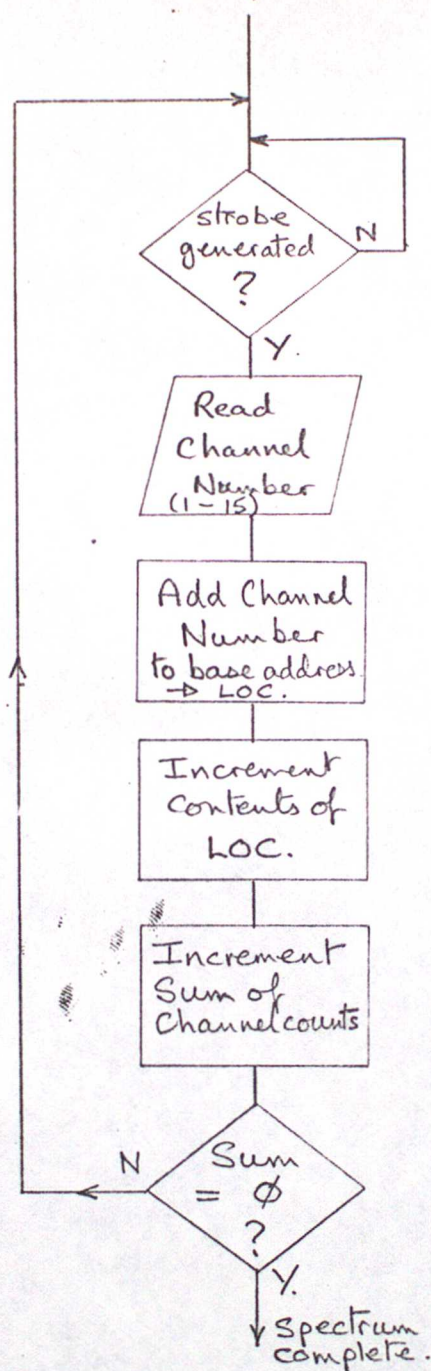 strobe
generated
?
N
Y.
Read
Channel
Number
(1-15)
Add Channel
Number
to base address
→ LOC.
Increment
Contents of
LOC.
Increment
Sum of
Channel counts
N
Sum
= ϕ
?
Y.
Spectrum
complete.